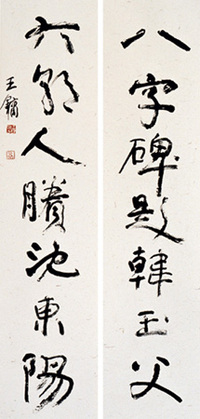 八字碑題韓玉父
六朝人賸沈東陽
王鏞